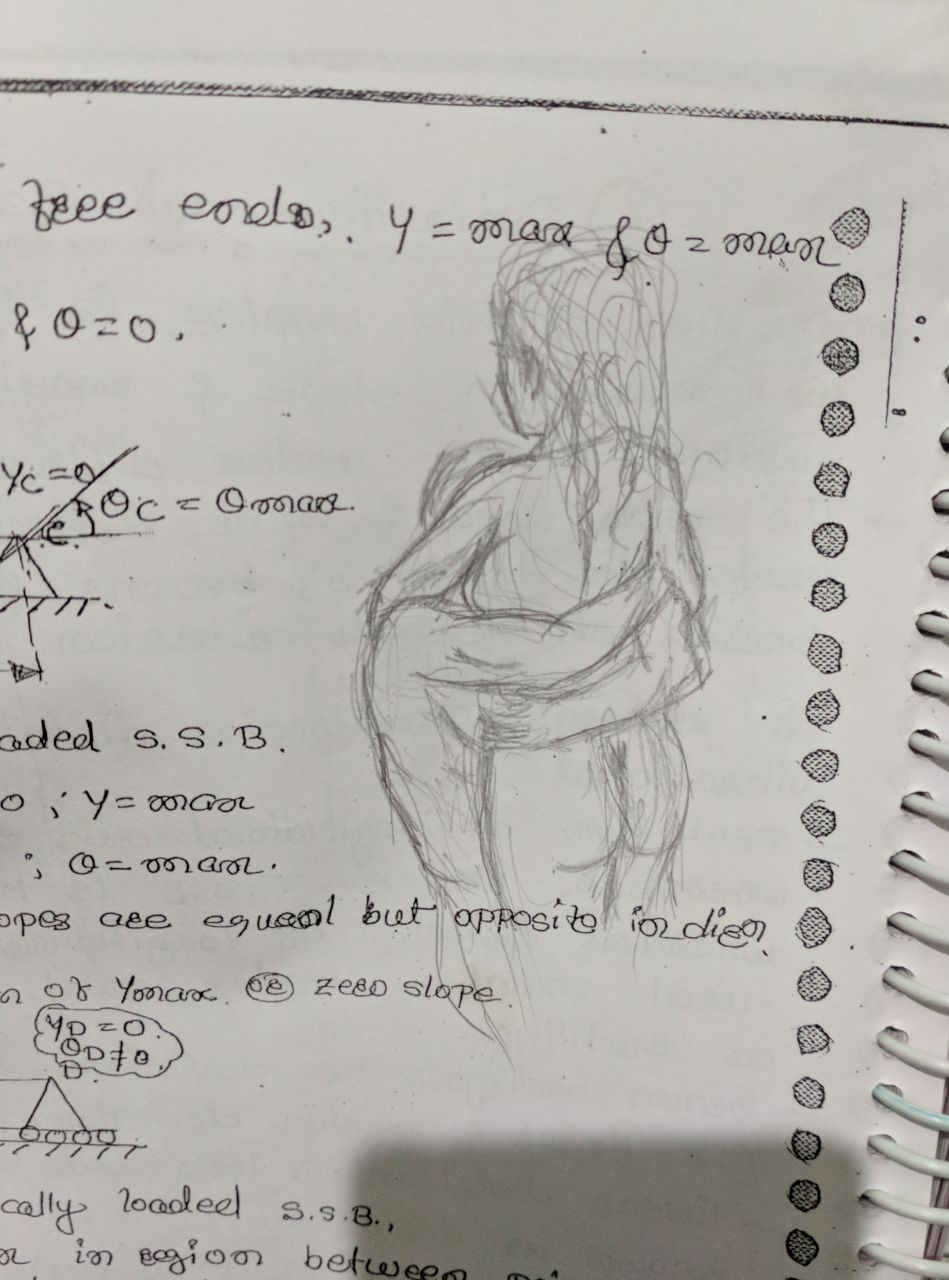 free ends, y = max & θ = max
& θ = 0.
yc = 0
θc = θmax.
c
aded S.S.B.
0 ; y = max
; θ = max.
opes are equal but opposite in dien
n of ymax. or zero slope
yD = 0
θD ≠ 0
D
cally loaded S.S.B.,
in region between
B